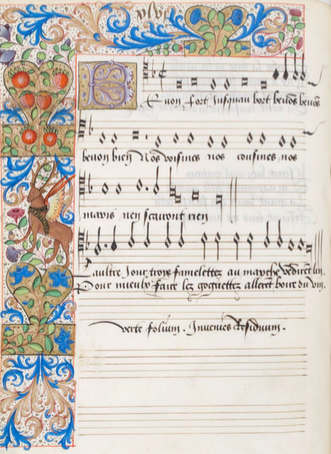 Euon fort Jusquau bort beuons beuons
beuon bien Nos voisines nos cousines nos
maris nen scauront rien
Lautre Jour troys famelettez au marche
Pour mieulx faire lez goguettez allerent boire du vin.
verte folium. Inuenies Residuum.